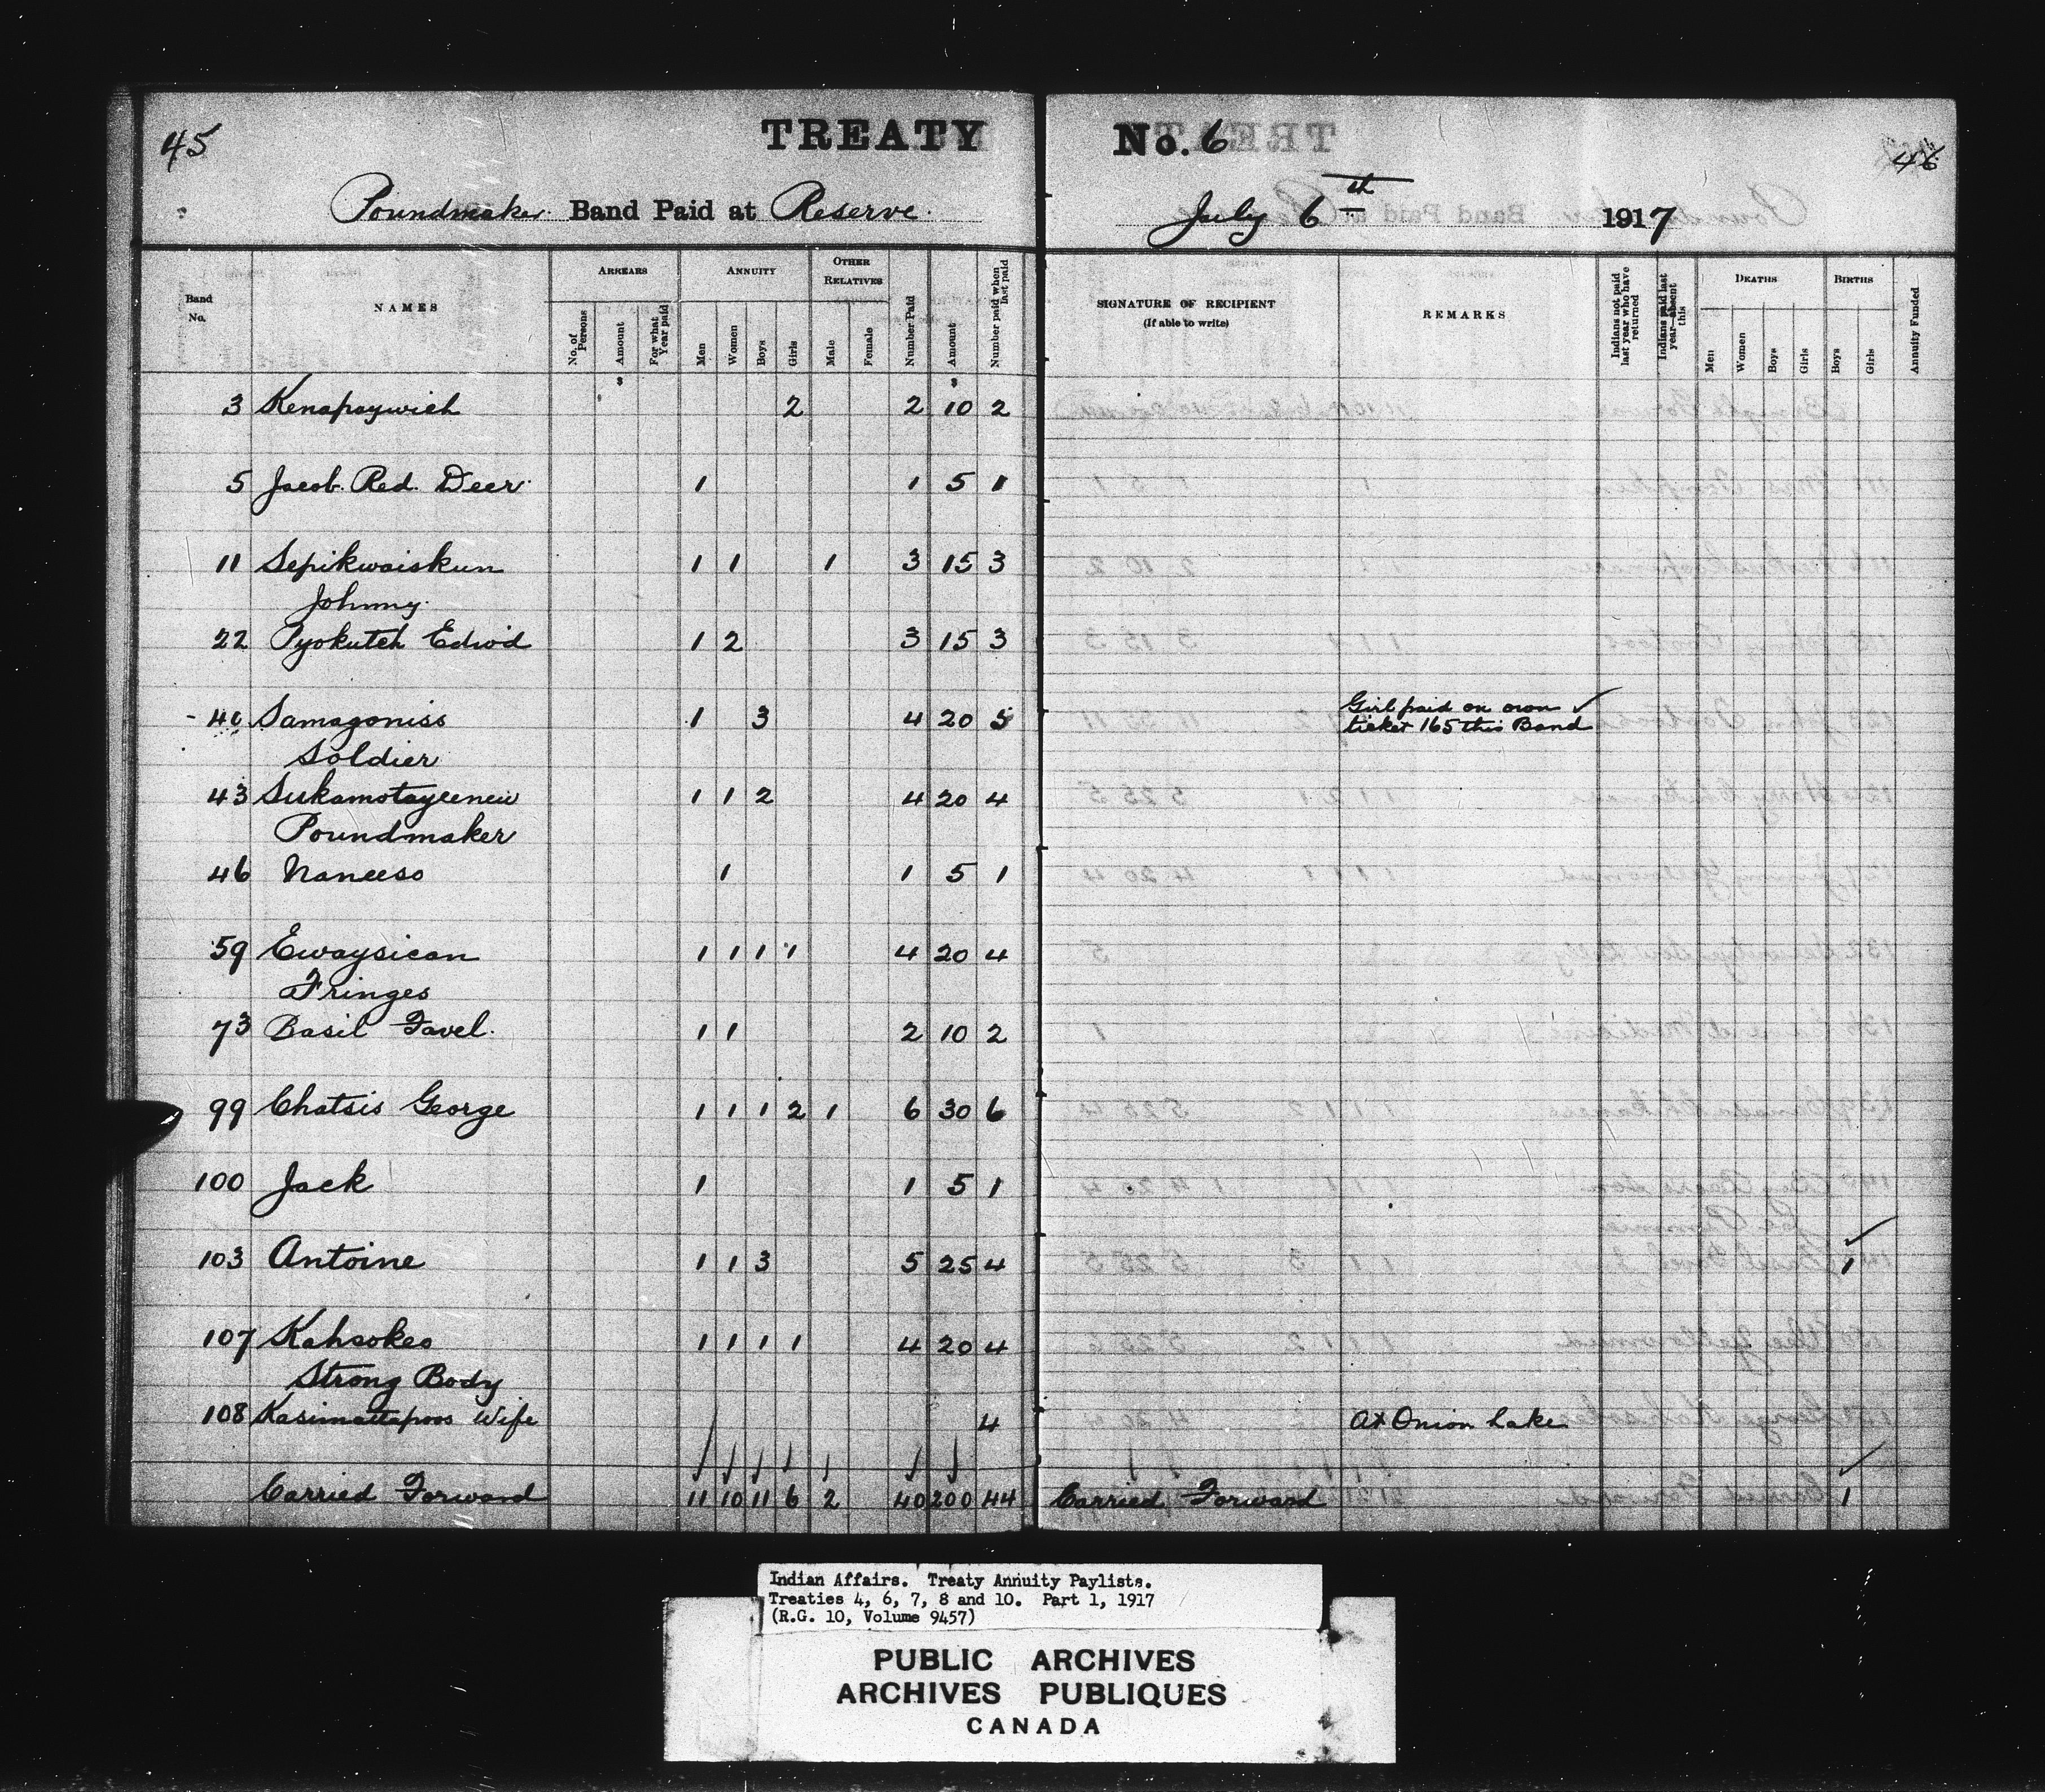 45
TREATY No. 6
46
Poundmaker Band Paid at Reserve. July 6th 1917
Band No.
NAMES
ARREARS
No. of Persons
Amount
For what Year paid
ANNUITY
Men
Women
Boys
Girls
OTHER RELATIVES
Male
Female
Number Paid
Amount
Number paid when last paid
SIGNATURE OF RECIPIENT
(If able to write)
REMARKS
Indians not paid last year who have returned
Indians paid last year—absent this
DEATHS
Men
Women
Boys
Girls
BIRTHS
Boys
Girls
Annuity Funded
$ $
3 Kenapaywich 2 2 10 2
5 Jacob Red Deer 1 1 5 1
11 Sepikwaiskun 1 1 1 3 15 3
Johnny
22 Pyokutch Edwd 1 2 3 15 3
40 Samagoniss 1 3 4 20 5 Girl paid on own ✓
ticket 165 this Band
Soldier
43 Sukamotayeenew 1 1 2 4 20 4
Poundmaker
46 Naneeso 1 1 5 1
59 Ewaysican 1 1 1 1 4 20 4
Fringes
73 Basil Favel 1 1 2 10 2
99 Chatsis George 1 1 1 2 1 6 30 6
100 Jack 1 1 5 1
103 Antoine 1 1 3 5 25 4 ✓ 1
107 Kahsokes 1 1 1 1 4 20 4
Strong Body
108 Kasimattapoos Wife 4 At Onion Lake
Carried Forward 11 10 11 6 2 40 200 44 Carried Forward ✓ 1
Indian Affairs. Treaty Annuity Paylists.
Treaties 4, 6, 7, 8 and 10. Part 1, 1917
(R.G. 10, Volume 9457)
PUBLIC ARCHIVES
ARCHIVES PUBLIQUES
CANADA